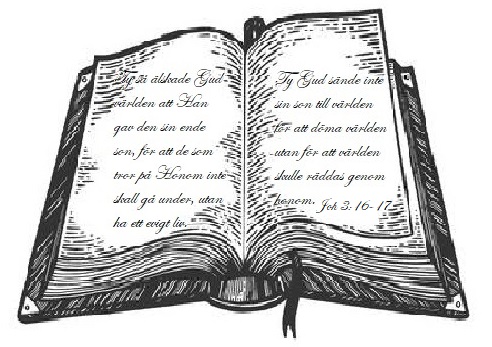 Ty så älskade Gud
världen att Han
gav den sin ende
son, för att de som
tror på Honom inte
skall gå under, utan
ha ett evigt liv.
Ty Gud sände inte
sin son till världen
för att döma världen
utan för att världen
skulle räddas genom
honom. Joh 3: 16-17